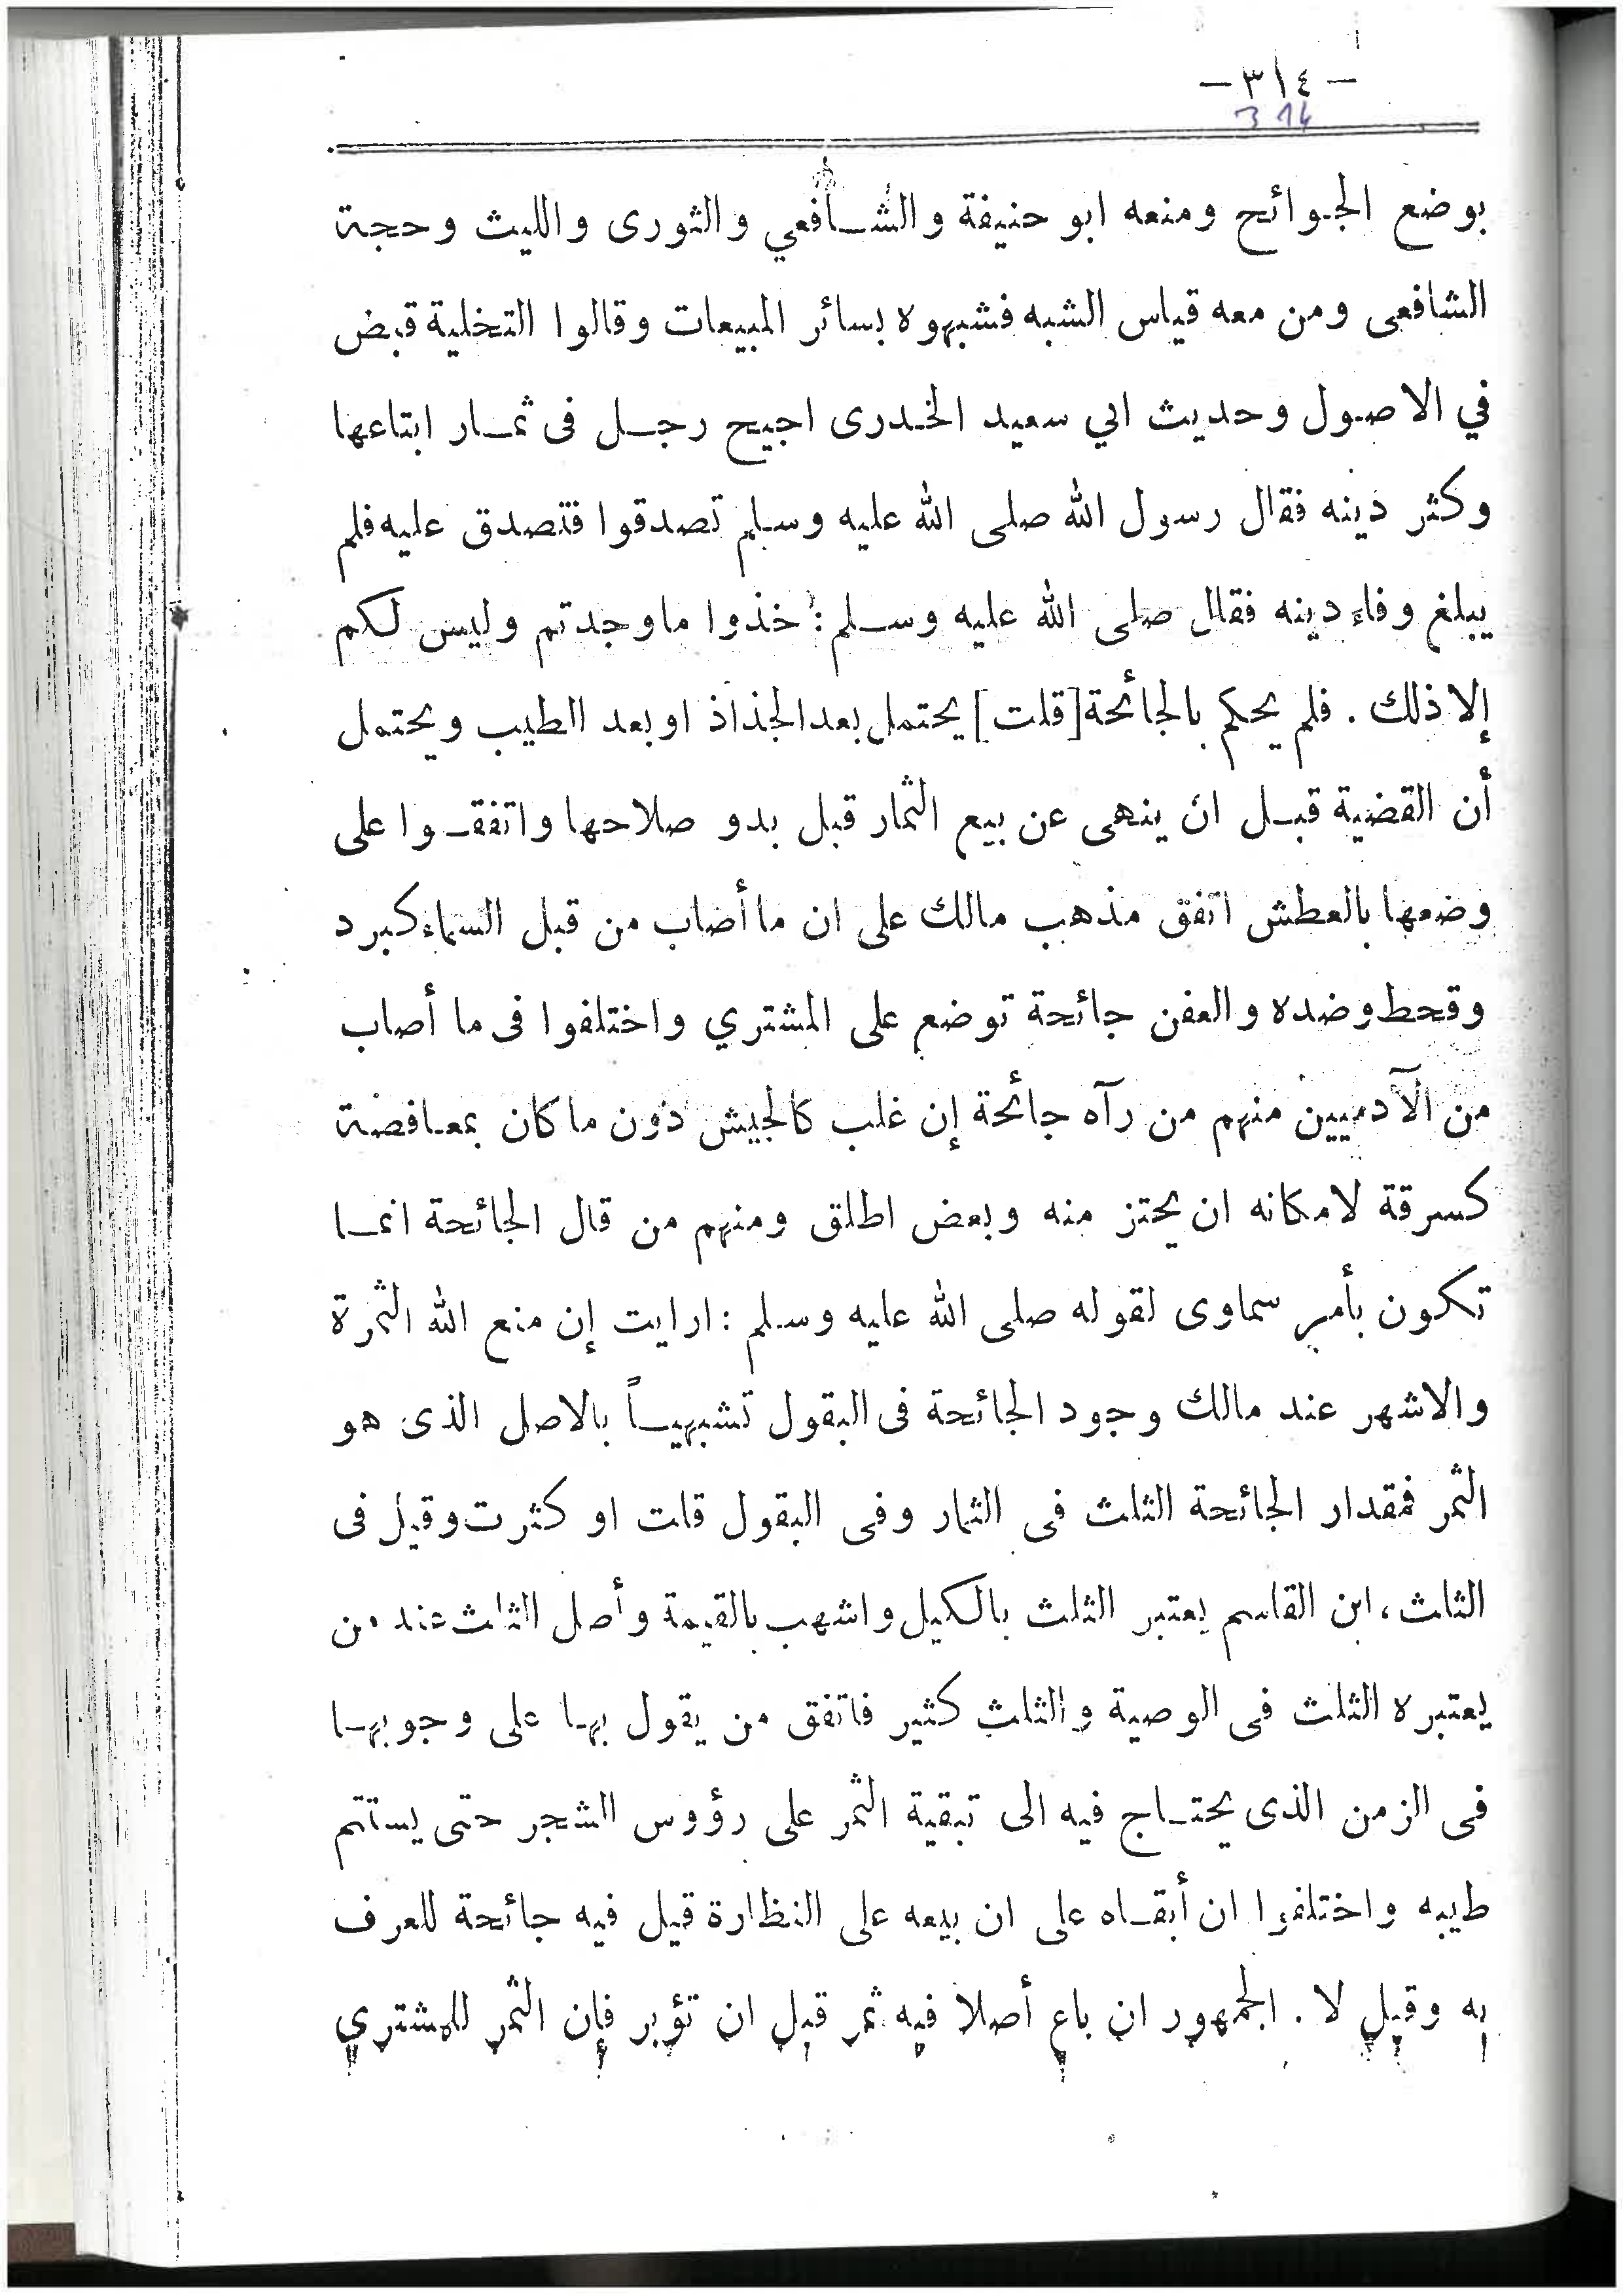 — ٣١٤ —
314
بوضع الجوائح ومنعه ابو حنيفة والشافعي والثورى والليث وحجة
الشافعى ومن معه قياس الشبه فشبهوه بسائر المبيعات وقالوا التخلية قبض
في الاصول وحديث ابي سعيد الخدرى اجيح رجل فى ثمار ابتاعها
وكثر دينه فقال رسول الله صلى الله عليه وسلم تصدقوا فتصدق عليه فلم
يبلغ وفاء دينه فقال صلى الله عليه وسلم : خذوا ما وجدتم وليس لكم
إلا ذلك . فلم يحكم بالجائحة [قلت] يحتمل بعد الجذاذ او بعد الطيب ويحتمل
أن القضية قبل ان ينهى عن بيع الثمار قبل بدو صلاحها واتفقوا على
وضعها بالعطش اتفق مذهب مالك على ان ما أصاب من قبل السماء كبرد
وقحط وضده والعفن جائحة توضع على المشتري واختلفوا فى ما أصاب
من الآدميين منهم من رآه جائحة إن غلب كالجيش دون ما كان بمعافصة
كسرقة لامكانه ان يحتز منه وبعض اطلق ومنهم من قال الجائحة انما
تكون بأمر سماوى لقوله صلى الله عليه وسلم : ارايت إن منع الله الثمرة
والاشهر عند مالك وجود الجائحة فى البقول تشبيهاً بالاصل الذى هو
الثمر فمقدار الجائحة الثلث فى الثمار وفى البقول قلت او كثرت وقيل فى
الثلث ، ابن القاسم يعتبر الثلث بالكيل واشهب بالقيمة وأصل الثلث عند من
يعتبره الثلث فى الوصية والثلث كثير فاتفق من يقول بها على وجوبها
فى الزمن الذى يحتاج فيه الى تبقية الثمر على رؤوس الشجر حتى يستتم
طيبه واختلفوا ان أبقاه على ان بيعه على النظارة قيل فيه جائحة للعرف
به وقيل لا . الجمهور ان باع أصلا فيه ثمر قبل ان تؤبر فإن الثمر للمشتري